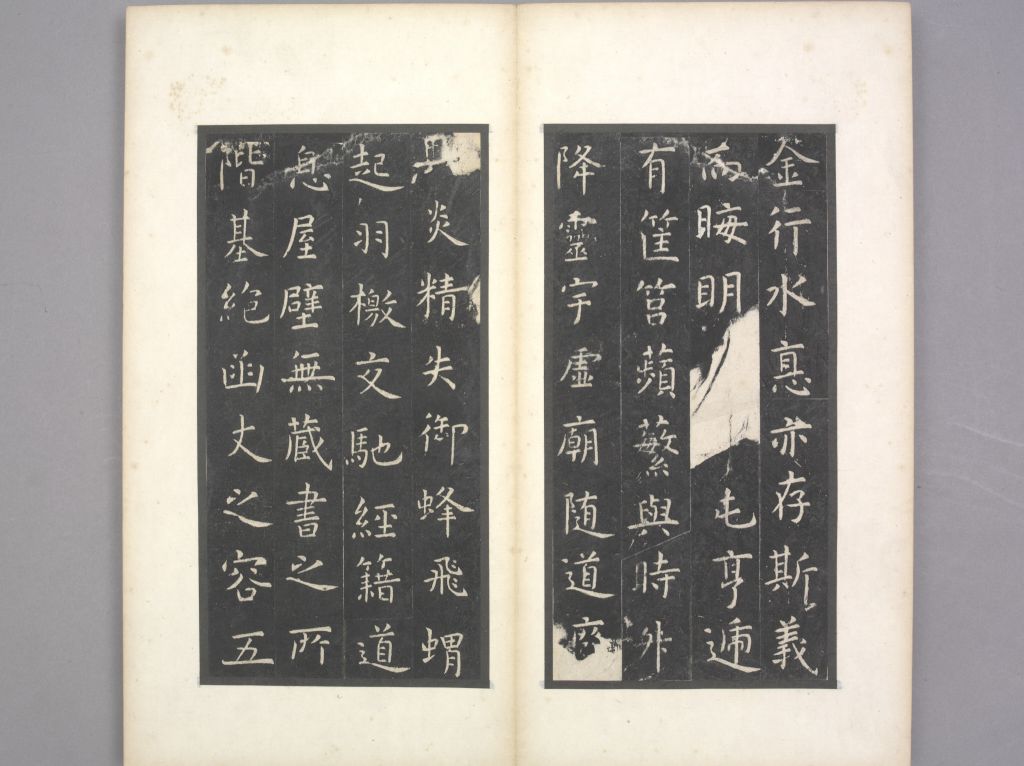 金行水惪亦存斯義
而晦明屯亨遞
有筐筥蘋蘩與時升
降靈宇虛廟随道廢
炎精失御蜂飛蝟
起羽檄交馳經籍道
息屋壁無藏書之所
階基絶函丈之容五